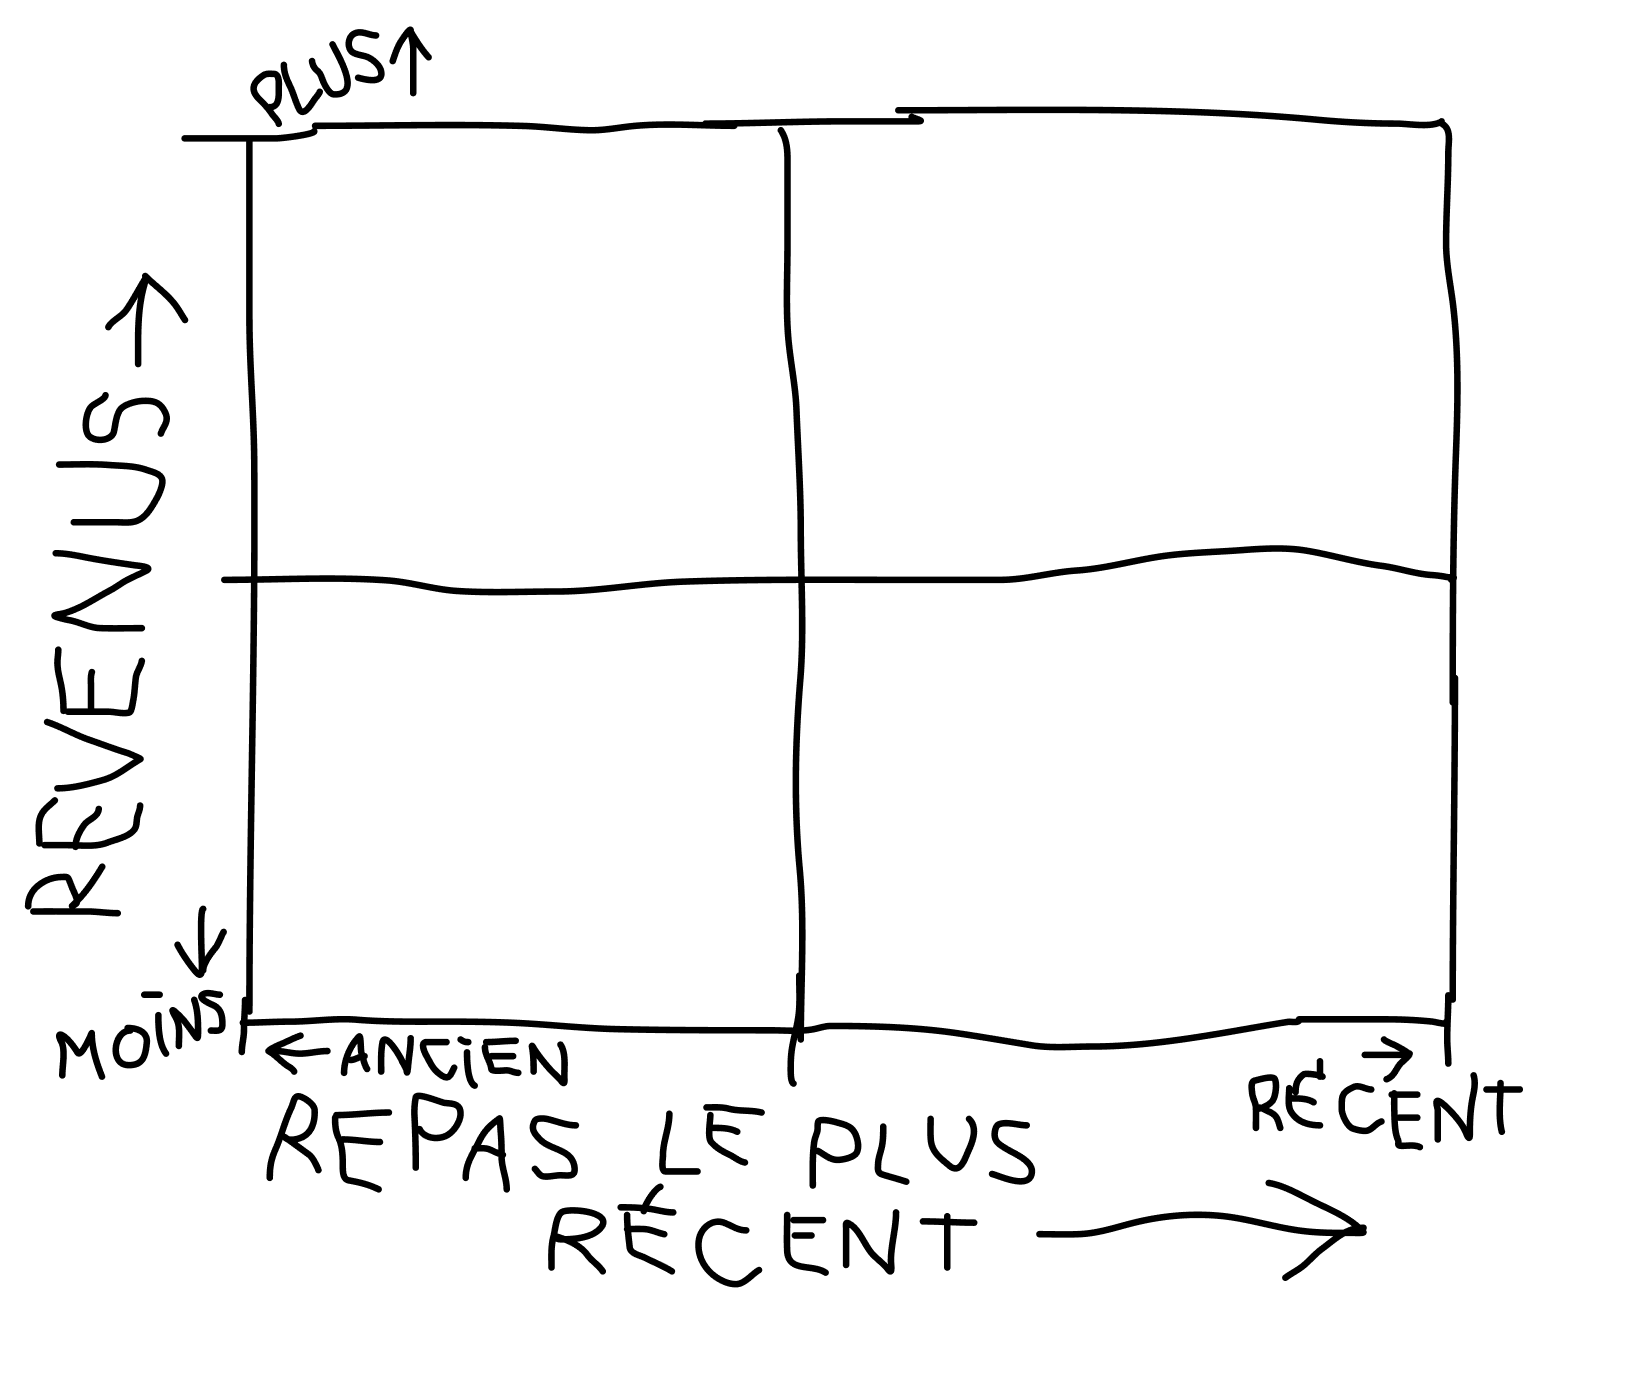 PLUS↑
REVENUS →
MOINS ↓
← ANCIEN
RÉCENT →
REPAS LE PLUS
RÉCENT →